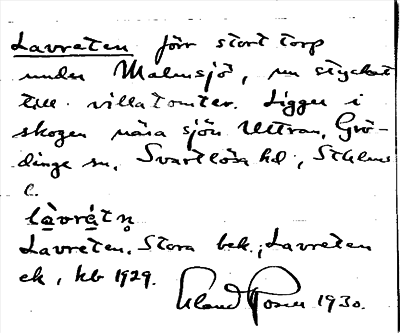 Lavreten förr stort torp
under Malmsjö, nu styckat
till villatomter. Ligger i
skogen nära sjön Uttran, Grö-
dinge sn, Svartlösa hd, Sthlms
C.
làvrétn̥
Lavreten, Stora bek.; Lavreten
ek, kb 1929.
Erland Rosell 1930.